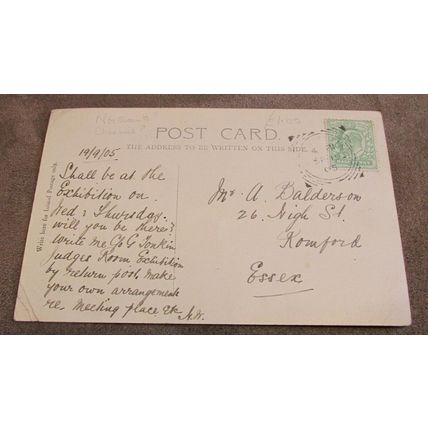 £1.00
POST CARD.
THE ADDRESS TO BE WRITTEN ON THIS SIDE.
Write here for Inland Postage only.
19/9/05.
Shall be at the
Exhibition on
Wed & Thursday.
will you be there?
write me C/o G Tonkin
Judges Room Exhibition
by return post. Make
your own arrangements
re. Meeting place Etc
A.W.
Mr. A. Balderson
26. High St.
Romford
Essex